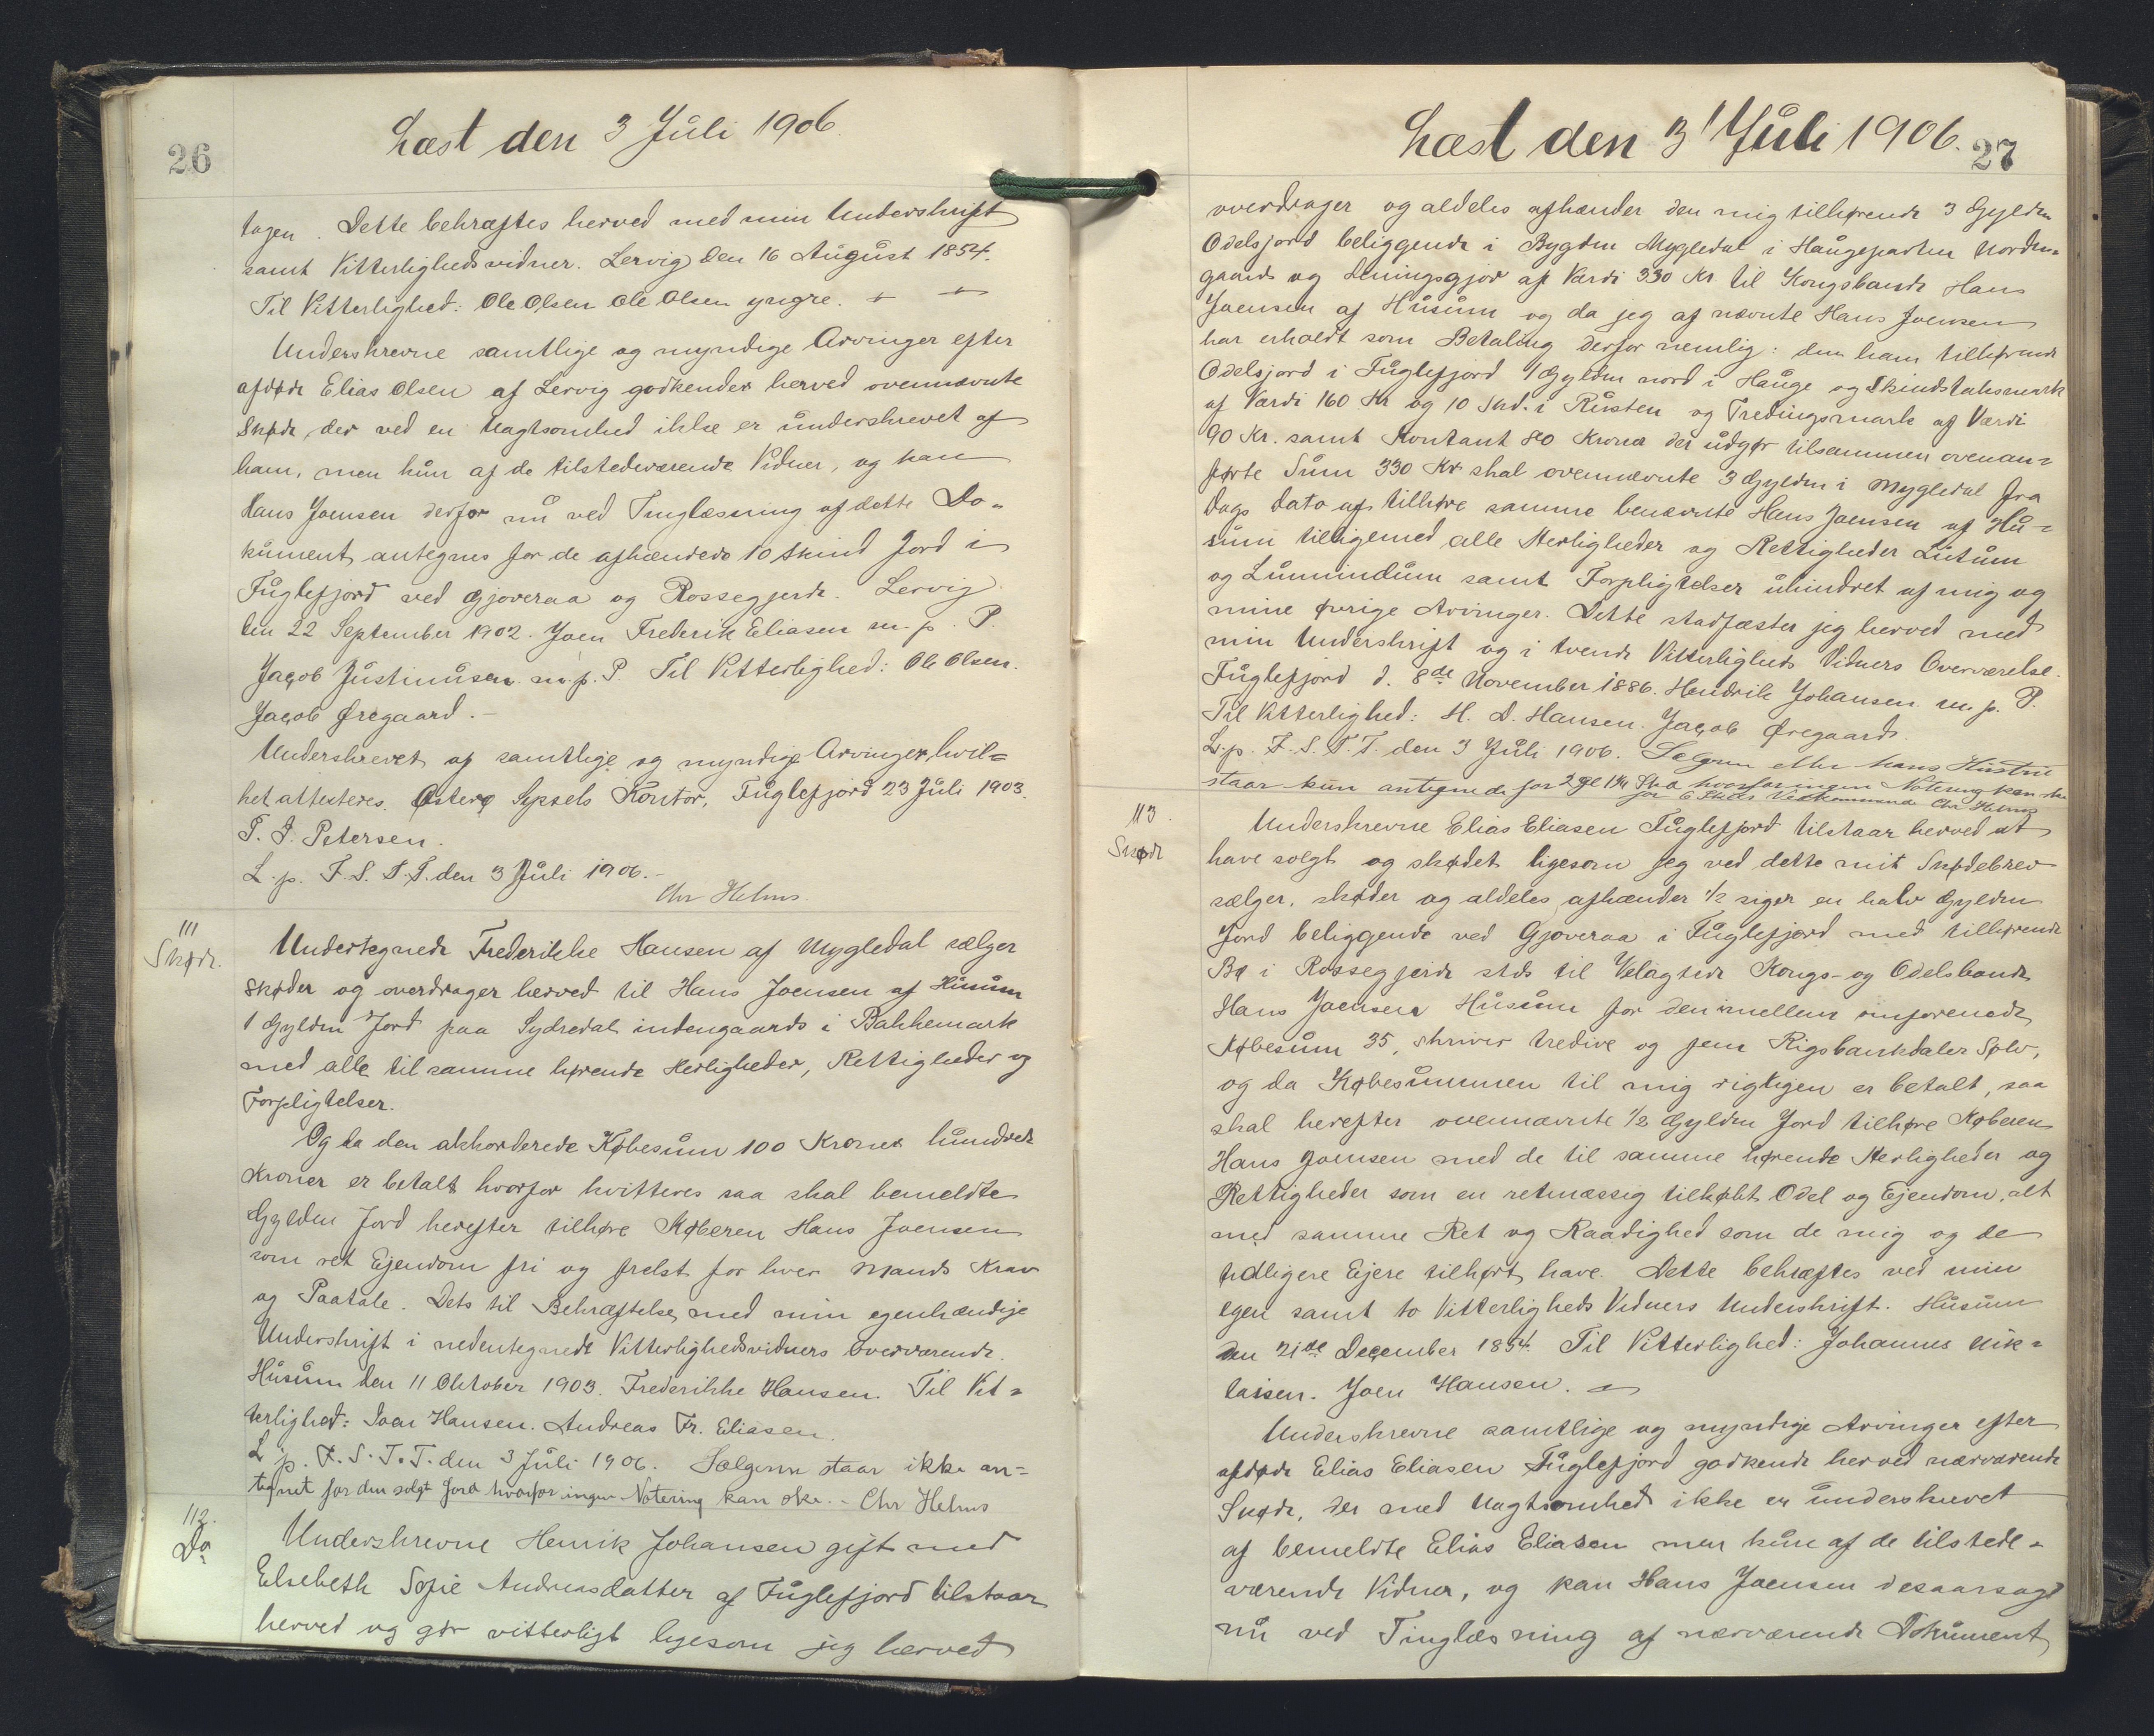 26
Læst den 3 Juli 1906.
tagen. Dette bekræftes herved med min Underskrift
samt Vitterlighedsvidner. Lervig den 16 August 1854.
Til Vitterlighed: Ole Olsen Ole Olsen yngre.
Underskrevne samtlige og myndige Arvinger efter
afdøde Elias Olsen af Lervig godkender herved ovennævnte
Skøde, der ved en Uagtsomhed ikke er underskrevet af
ham, men kun af de tilstedeværende Vidner, og kan
Hans Joensen derfor nu ved Tinglæsning af dette Do-
kument antegnes for de afhændede 10 Skind Jord i
Fuglefjord ved Gjoveraa og Rossegjerde. Lervig
den 22 September 1902. Joen Frederik Eliasen m. p. P.
Jacob Justinusen m. p. P. Til Vitterlighed: Ole Olsen.
Jacob Øregaard.-
Underskrevet af samtlige og myndige Arvinger, hvil=
ket attesteres. Østerø Syssels Kontor, Fuglefjord 23 Juli 1903.
P. J. Petersen.
L. p. F. S. T. T. den 3 Juli 1906.-
Chr Helms.
111
Skøde.
Undertegnede Frederikke Hansen af Mygledal sælger
skøder og overdrager herved til Hans Joensen af Husum
1 Gylden Jord paa Sydredal indengaards i Bakkemark
med alle til samme hørende Herligheder, Rettigheder og
Forpligtelser.
Og da den akkorderede Købesum 100 Kroner hundrede
Kroner er betalt hvorfor kvitteres saa skal bemeldte
Gylden Jord herefter tilhøre Køberen Hans Joensen
som ret Ejendom fri og frelst for hver Mands Krav
og Paatale. Dets til Bekræftelse med min egenhændige
Underskrift i nedentegnede Vitterlighedsvidners Overværende.
Husum den 11 Oktober 1903. Frederikke Hansen. Til Vit=
terlighed: Joen Hansen. Andreas Fr. Eliasen.
L. p. F. S. T. T. den 3 Juli 1906. Sælgeren staar ikke an=
tegnet for den solgt Jord hvorfor ingen Notering kan ske. - Chr Helms
112.
Do
Underskrevne Henrik Johansen gift med
Elsebeth Sofie Andreasdatter af Fuglefjord tilstaar
herved og gør vitterligt ligesom jeg herved
Læst den 3' Juli 1906.
27
overdrager og aldeles afhænder den mig tilhørende 3 Gylden
Odelsjord beliggende i Bygden Mygledal i Haugeparten Norden=
gaards og af Værdi 330 Kr til Kongsbonde Hans
Joensen af Husum og da jeg af nævnte Hans Joensen
har erholdt som Betaling derfor nemlig: den ham tilhørende
Odelsjord i Fuglefjord 1 Gylden nord i Hauge og Skindstaksmark
af Værdi 160 Kr og 10 Skd. i Rusten og Tredingsmark af Værdi
90 Kr. samt Kontant 80 Kroner der udgør tilsammen ovenan=
førte Sum 330 Kr skal ovennævnte 3 Gylden i Mygledal fra
Dags Dato af tilhøre samme benævnte Hans Joensen af Hu=
sum tilligemed alle Herligheder og Rettigheder Lutum
og Lunnindum samt Forpligtelser uhindret af mig og
mine øvrige Arvinger. Dette stadfæster jeg herved med
min Underskrift og i tvende Vitterligheds Vidners Overværelse.
Fuglefjord d. 8de November 1886. Hendrik Johansen m. p. P.
Til Vitterlighed: H. D. Hansen. Jacob Øregaard.
L. p. F. S. T. T. den 3 Juli 1906. Sælgeren eller hans Hustru
staar kun antegnede for 2 Gl 14 Skd hvorfor ingen Notering kan ske
for 6 Skds Vedkommende Chr Helms
113.
Skøde
Underskrevne Elias Eliasen Fuglefjord tilstaar herved at
have solgt og skødet ligesom jeg ved dette mit Skødebrev
sælger, skøder og aldeles afhænder 1/2 siger en halv Gylden
Jord beliggende ved Gjoveraa i Fuglefjord med tilhørende
Bø i Rossegjerde stds til Velagtede Kongs- og Odelsbonde
Hans Joensen Husum for den imellem omforenede
Købesum 35, skriver tredive og fem Rigsbankdaler Sølv,
og da Købesummen til mig rigtigen er betalt, saa
skal herefter ovennævnte 1/2 Gylden Jord tilhøre Køberen
Hans Joensen med de til samme hørende Herligheder og
Rettigheder som en retmæssig tilkøbt Odel og Ejendom, alt
med samme Ret og Raadighed som de mig og de
tidligere Ejere tilhørt have. Dette bekræftes ved min
egen samt to Vitterligheds Vidners Underskrift. Husum
den 21de December 1854. Til Vitterlighed: Johannes Nik=
laisen. Joen Hansen.
Underskrevne samtlige og myndige Arvinger efter
afdøde Elias Eliasen Fuglefjord godkende herved nærværende
Skøde, der med Uagtsomhed ikke er underskrevet
af bemeldte Elias Eliasen men kun af de tilstede-
værende Vidner, og kan Hans Joensen desaarsag
nu ved Tinglæsning af nærværende Dokument